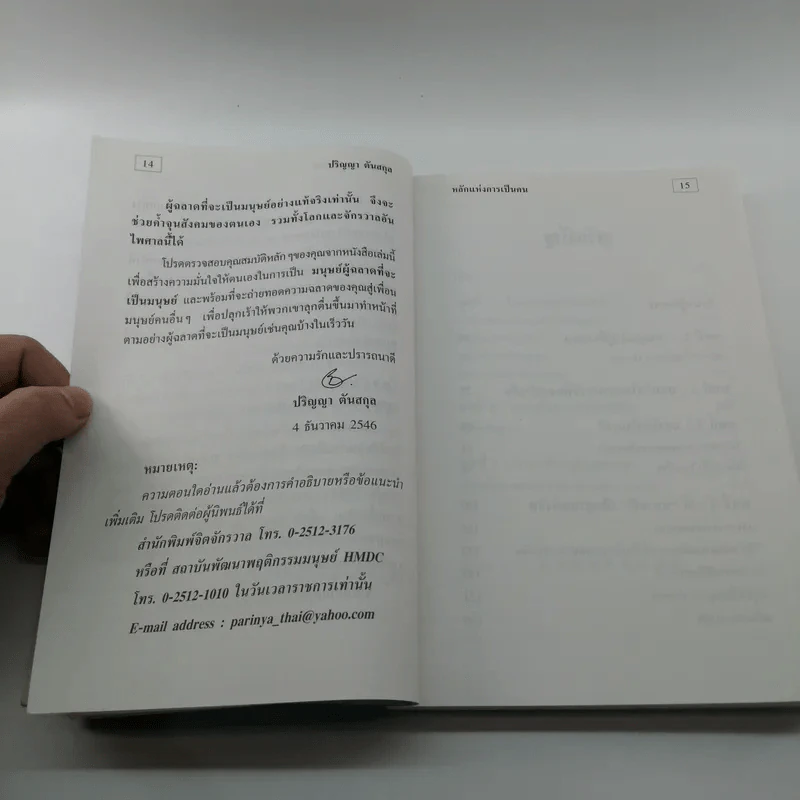 14
ปริญญา ตันสกุล
ผู้ฉลาดที่จะเป็นมนุษย์อย่างแท้จริงเท่านั้น จึงจะ
ช่วยค้ำจุนสังคมของตนเอง รวมทั้งโลกและจักรวาลอัน
ไพศาลนี้ได้
โปรดตรวจสอบคุณสมบัติหลักๆของคุณจากหนังสือเล่มนี้
เพื่อสร้างความมั่นใจให้ตนเองในการเป็น มนุษย์ผู้ฉลาดที่จะ
เป็นมนุษย์ และพร้อมที่จะถ่ายทอดความฉลาดของคุณสู่เพื่อน
มนุษย์คนอื่นๆ เพื่อปลุกเร้าให้พวกเขาลุกตื่นขึ้นมาทำหน้าที่
ตามอย่างผู้ฉลาดที่จะเป็นมนุษย์เช่นคุณบ้างในเร็ววัน
ด้วยความรักและปรารถนาดี
ปริญญา ตันสกุล
4 ธันวาคม 2546
หมายเหตุ:
ความตอนใดอ่านแล้วต้องการคำอธิบายหรือข้อแนะนำ
เพิ่มเติม โปรดติดต่อผู้นิพนธ์ได้ที่
สำนักพิมพ์จิตจักรวาล โทร. 0-2512-3176
หรือที่ สถาบันพัฒนาพฤติกรรมมนุษย์ HMDC
โทร. 0-2512-1010 ในวันเวลาราชการเท่านั้น
E-mail address : parinya_thai@yahoo.com
หลักแห่งการเป็นคน
15